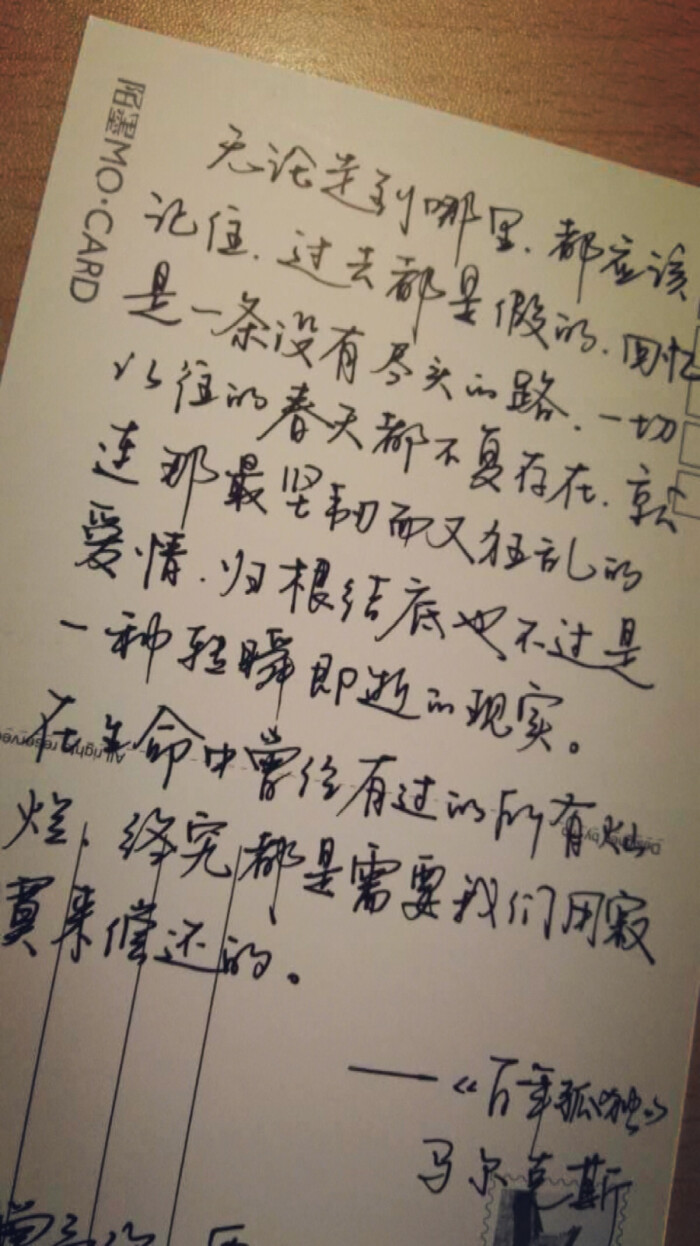 陌墨MO·CARD
无论走到哪里、都应该
记住、过去都是假的、回忆
是一条没有尽头的路、一切
以往的春天都不复存在、就
连那最坚韧而又狂乱的
爱情、归根结底也不过是
一种转瞬即逝的现实。
在生命中曾经有过的所有灿
烂、终究都是需要我们用寂
寞来偿还的。
——《百年孤独》
马尔克斯
All rights reserved